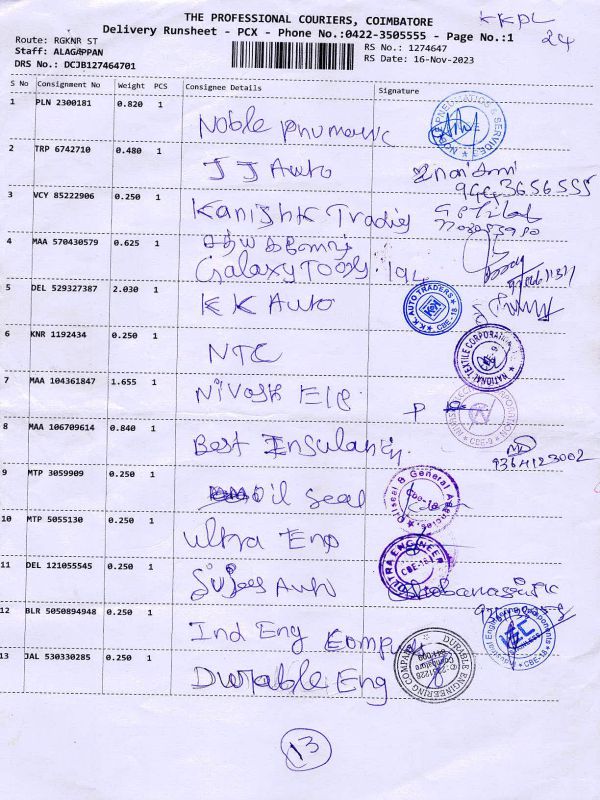 THE PROFESSIONAL COURIERS, COIMBATORE
KKPL
24
Delivery Runsheet - PCX - Phone No.:0422-3505555 - Page No.:1
Route: RGKNR ST
Staff: ALAGAPPAN
DRS No.: DCJB127464701
RS No.: 1274647
RS Date: 16-Nov-2023
S No Consignment No Weight PCS Consignee Details Signature
1 PLN 2300181 0.820 1
Noble pnumatic
2 TRP 6742710 0.480 1
J J Auto
3 VCY 85222906 0.250 1
Kanishk Trading
4 MAA 570430579 0.625 1
Galaxy Tools
5 DEL 529327387 2.030 1
K K Auto
K.K. AUTO TRADERS CBE-18
6 KNR 1192434 0.250 1
NTC
NATIONAL TEXTILE CORPORATION
7 MAA 104361847 1.655 1
Nivash Ele
CBE-9
8 MAA 106709614 0.840 1
Best Insulation
9364123002
9 MTP 3059909 0.250 1
oil seal
Oilseal & General Agencies CBE-18
10 MTP 5055130 0.250 1
Ultra Eng
ULTRA ENGINEER CBE-18
11 DEL 121055545 0.250 1
Sujees Auto
12 BLR 5050894948 0.250 1
Ind Eng Comp
Industrial Engineering Components IEC CBE-18
13 JAL 530330285 0.250 1
Durable Eng
DURABLE ENGINEERING COMPANY
13